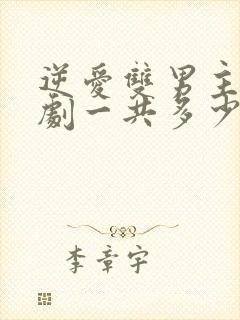 逆愛雙男主
劇一共多少
李章宇